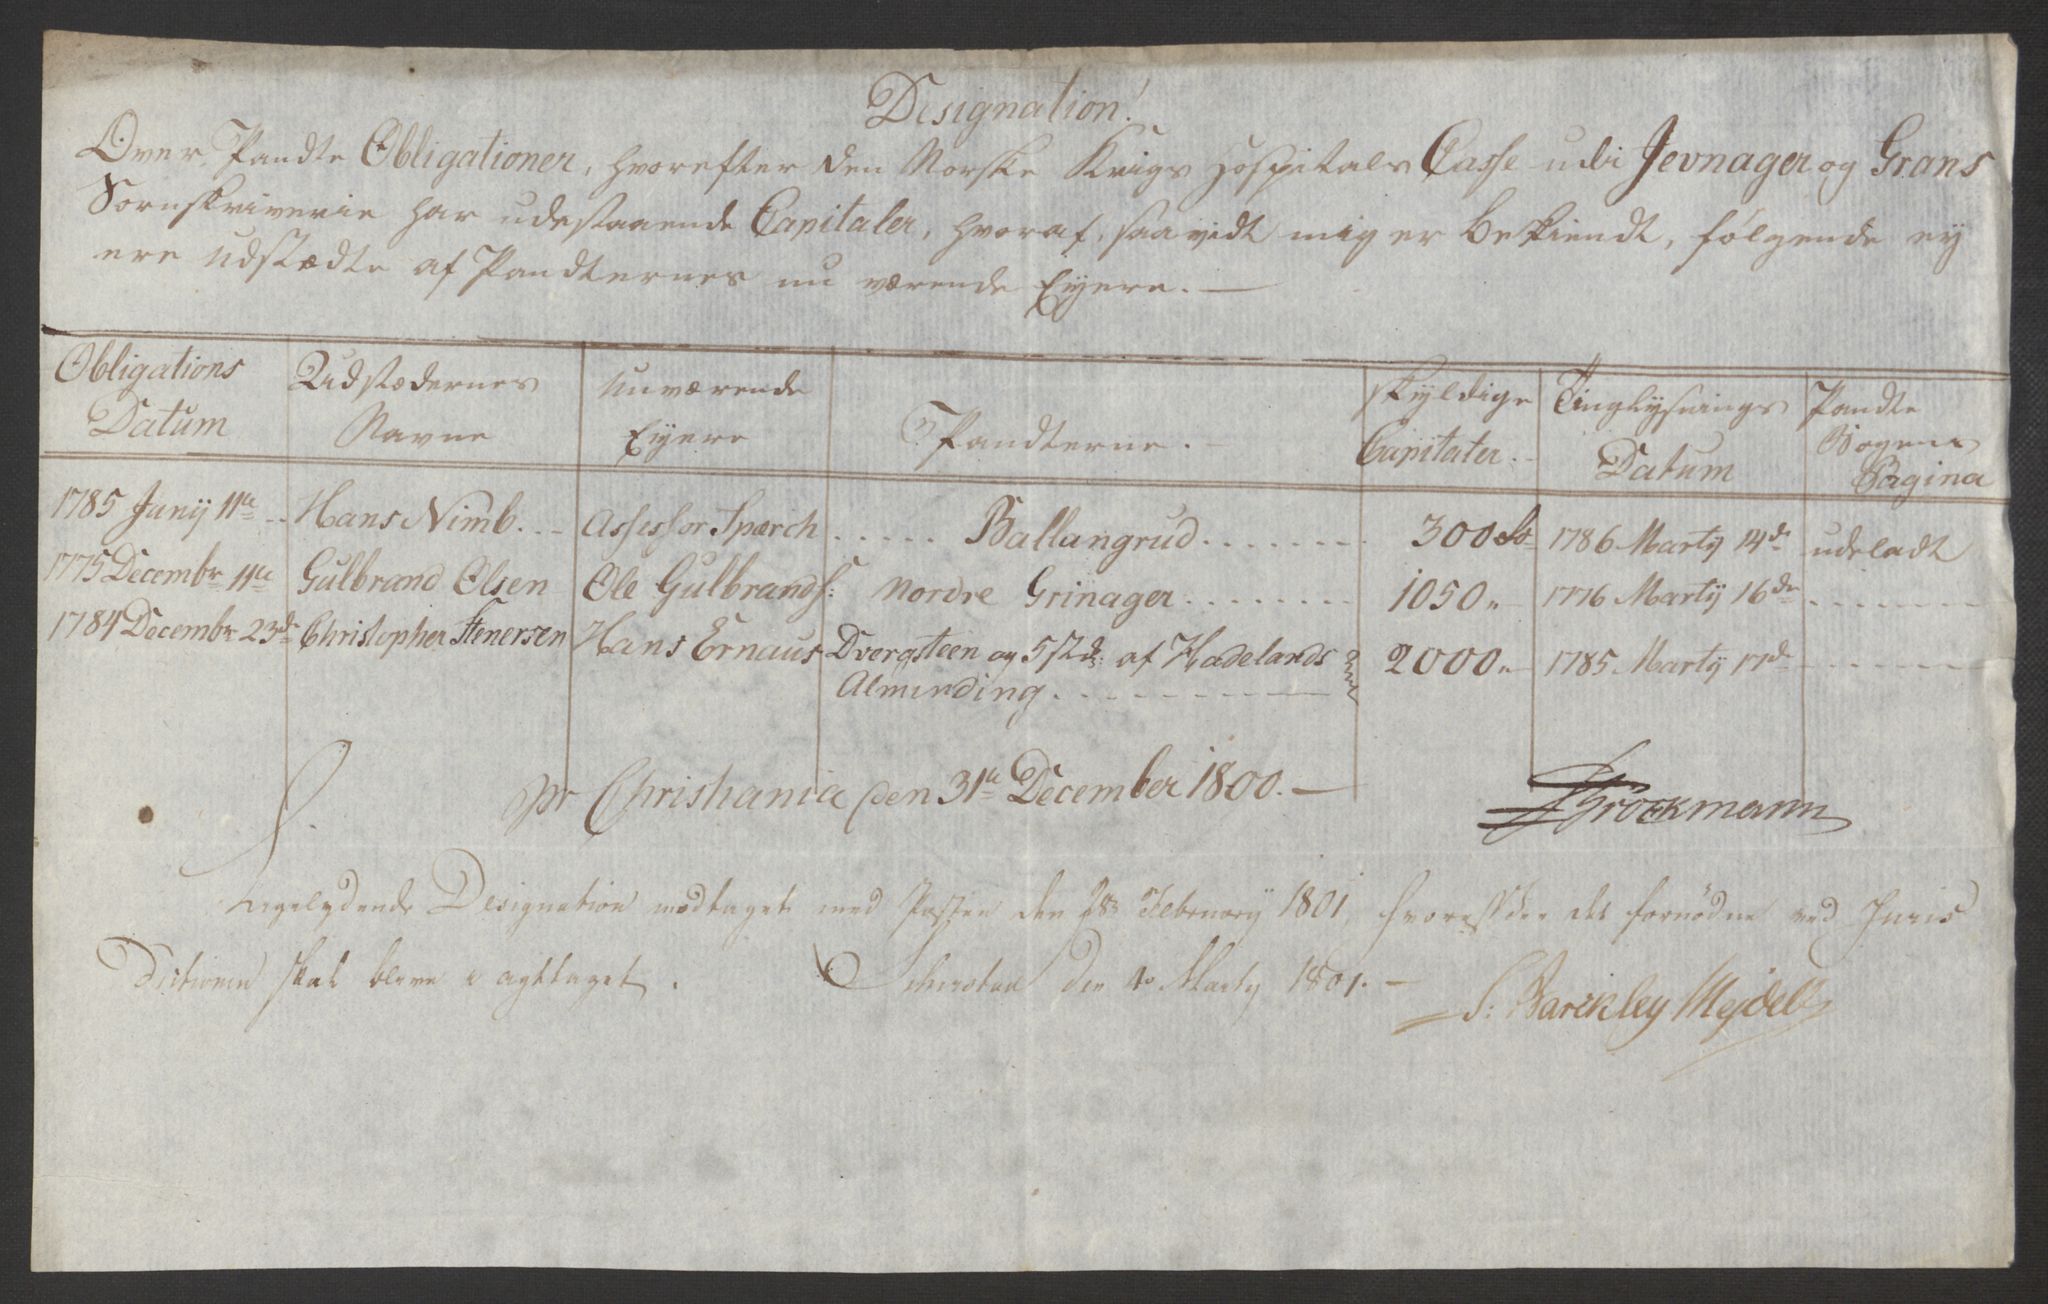 Designation!
Over Pandte Obligationer, hvorefter den Norske Krigs Hospitals Casse udi Jevnager og Grans
Sorenskriverie har udestaaende Capitaler, hvoraf, saavidt mig er bekiendt, følgende ey
ere udstædte af Pandternes nu værende Eyere. —
Obligations Datum | Udstædernes Navne | Nuværende Eyere | Pandterne. | skyldige Capitaler. | Tinglysnings Datum | Pandte Bogens Pagina
1785 Junij 11te | Hans Nimb. | Assessor Spærch | Ballangrud | 300 | 1786 Martij 14de | udeladt
1775 Decembr 11te | Gulbrand Olsen | Ole Gulbrands: | Nordre Grinager | 1050 " | 1776 Martij 16de
1784 Decembr 23de | Christopher Stenersen | Hans Ernaus | Dvergsteen og af Hadelands | 2000 " | 1785 Martij 17de
Alminding
pr Christiania den 31te December 1800. —
Brockmann
Ligelydende Designation modtaget med Posten den 28 Februarij 1801, hvorefter det fornødne ved Juris
Dictionen skal blive i agttaget.
den 4 Martij 1801. —
S: Barckley Mejdell